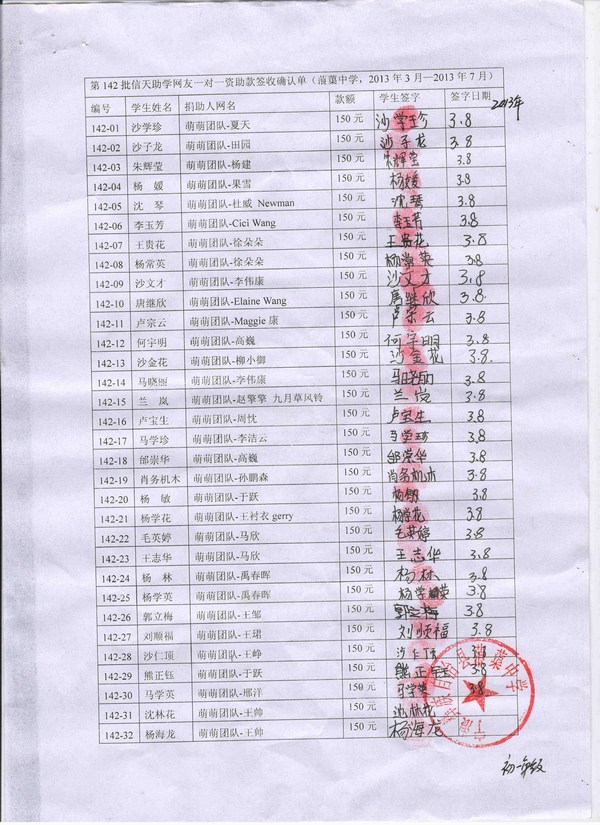 第 142 批信天助学网友一对一资助款签收确认单（蒗蕖中学，2013 年 3 月—2013 年 7 月）
编号 学生姓名 捐助人网名 款额 学生签字 签字日期 2013年
142-01 沙学珍 萌萌团队-夏天 150 元 沙学珍 3.8
142-02 沙子龙 萌萌团队-田园 150 元 沙子龙 3.8
142-03 朱辉莹 萌萌团队-杨建 150 元 朱辉莹 3.8
142-04 杨 媛 萌萌团队-果雪 150 元 杨媛 3.8
142-05 沈 琴 萌萌团队-杜威 Newman 150 元 沈琴 3.8
142-06 李玉芳 萌萌团队-Cici Wang 150 元 李玉芳 3.8
142-07 王贵花 萌萌团队-徐朵朵 150 元 王贵花 3.8
142-08 杨常英 萌萌团队-徐朵朵 150 元 杨常英 3.8
142-09 沙文才 萌萌团队-李伟康 150 元 沙文才 3.8
142-10 唐继欣 萌萌团队-Elaine Wang 150 元 唐继欣 3.8
142-11 卢宗云 萌萌团队-Maggie 康 150 元 卢宗云 3.8
142-12 何宇明 萌萌团队-高巍 150 元 何宇明 3.8
142-13 沙金花 萌萌团队-柳小御 150 元 沙金花 3.8
142-14 马晓丽 萌萌团队-李伟康 150 元 马晓丽 3.8
142-15 兰 岚 萌萌团队-赵擎擎 九月草风铃 150 元 兰岚 3.8
142-16 卢宝生 萌萌团队-周忱 150 元 卢宝生 3.8
142-17 马学珍 萌萌团队-李洁云 150 元 马学珍 3.8
142-18 邰崇华 萌萌团队-高巍 150 元 邰崇华 3.8
142-19 肖务机木 萌萌团队-孙鹏森 150 元 肖务机木 3.8
142-20 杨 敏 萌萌团队-于跃 150 元 杨敏 3.8
142-21 杨学花 萌萌团队-王衬衣 gerry 150 元 杨学花 3.8
142-22 毛英婷 萌萌团队-马欣 150 元 毛英婷 3.8
142-23 王志华 萌萌团队-马欣 150 元 王志华 3.8
142-24 杨 林 萌萌团队-禹春晖 150 元 杨林 3.8
142-25 杨学英 萌萌团队-禹春晖 150 元 杨学英 3.8
142-26 郭立梅 萌萌团队-王邹 150 元 郭立梅 3.8
142-27 刘顺福 萌萌团队-王珺 150 元 刘顺福 3.8
142-28 沙仁顶 萌萌团队-王峥 150 元 沙仁顶 3.8
142-29 熊正钰 萌萌团队-于跃 150 元 熊正钰 3.8
142-30 马学英 萌萌团队-邢洋 150 元 马学英 3.8
142-31 沈林花 萌萌团队-王帅 150 元 沈林花
142-32 杨海龙 萌萌团队-王帅 150 元 杨海龙
初一年级